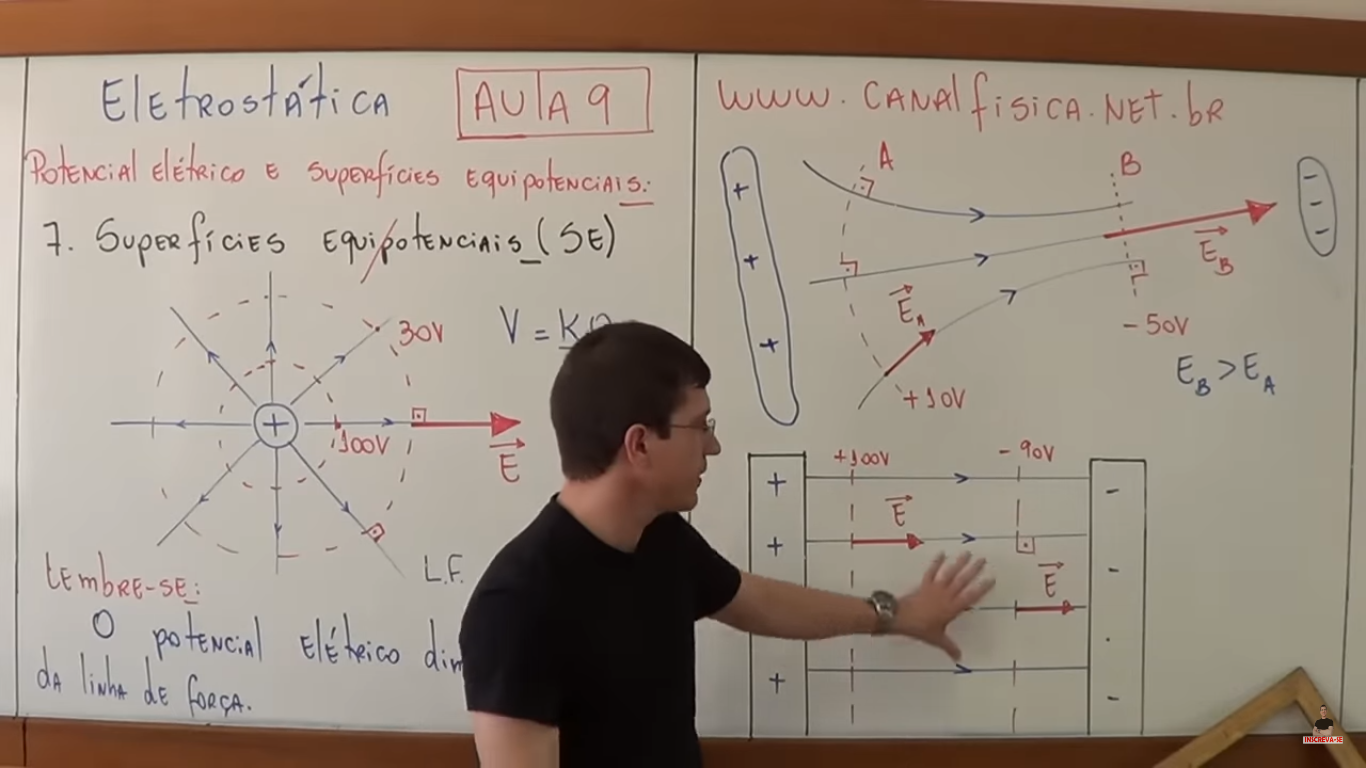 Eletrostática
AULA 9
Potencial elétrico e superfícies equipotenciais:
7. Superfícies equipotenciais (SE)
30V
V = K
+
100V
E
L.F.
Lembre-se:
O potencial elétrico
da linha de força.
www.canalfisica.net.br
A
B
+
+
+
-
-
-
E_A
E_B
-50V
+10V
E_B > E_A
+100V
-90V
+
+
+
-
-
-
E
E
INSCREVA-SE